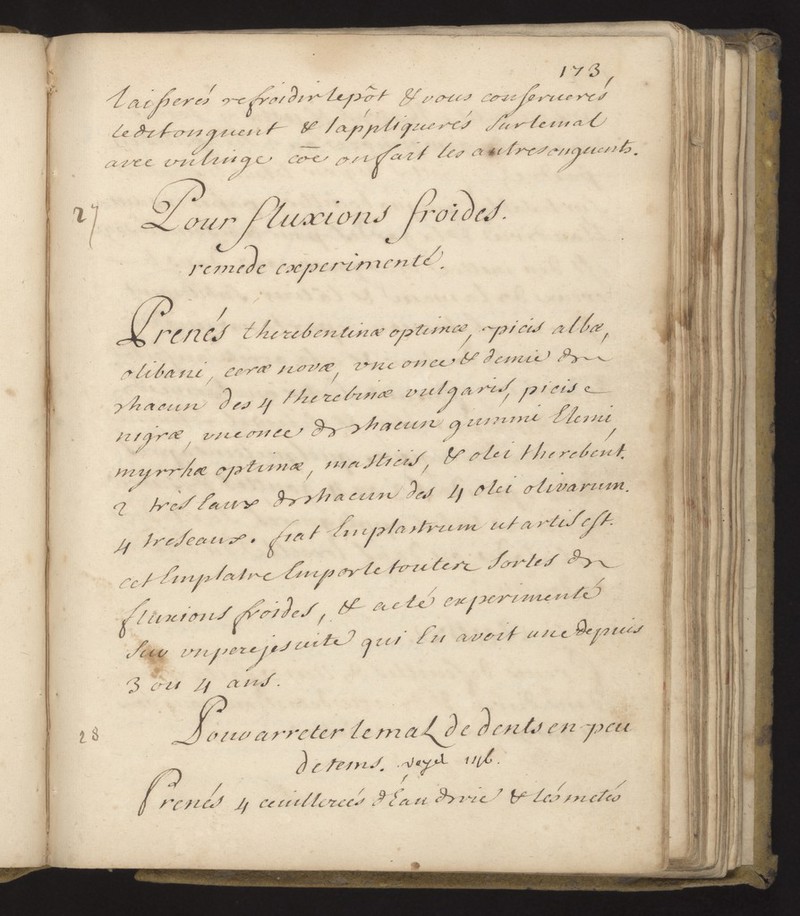 173
laisserés refroidir le pôt & vous conserverés
le dit onguent & l'appliquerés sur le mal
avec un linge cõe on fait les autres onguents.
27 Pour fluxions froides.
remede experimenté.
Prenés therebentinæ optimæ, picis albæ,
olibani, ceræ novæ, une once & demie de
chacun des 4 therebinæ vulgaris, picis
nigræ, une once de chacun gummi Elemi,
myrrhæ optimæ, masticis, & olei therebent.
2 treseaux de chacun des 4 olei olivarum.
4 treseaux. fiat Emplastrum ut artis est.
cet Emplatre Emporte toutere sortes de
fluxions froides, & a eté experimenté
sur un pere jesuite qui En avoit une depuis
3 ou 4 ans.
28 Pour arreter le mal de dents en peu
de tems.
Prenés 4 ceuillereés d'Eau de vie & les metés